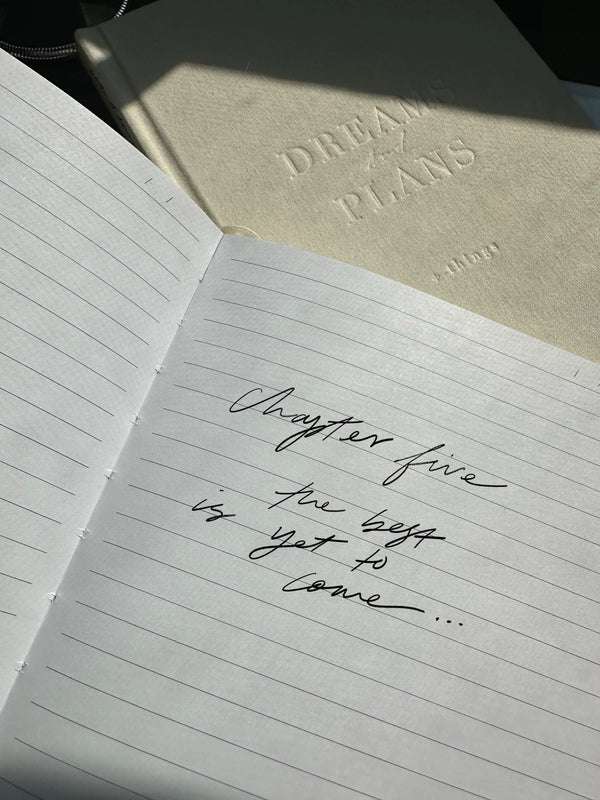 DREAMS
and
PLANS
chapter five
the best
is yet to
come...